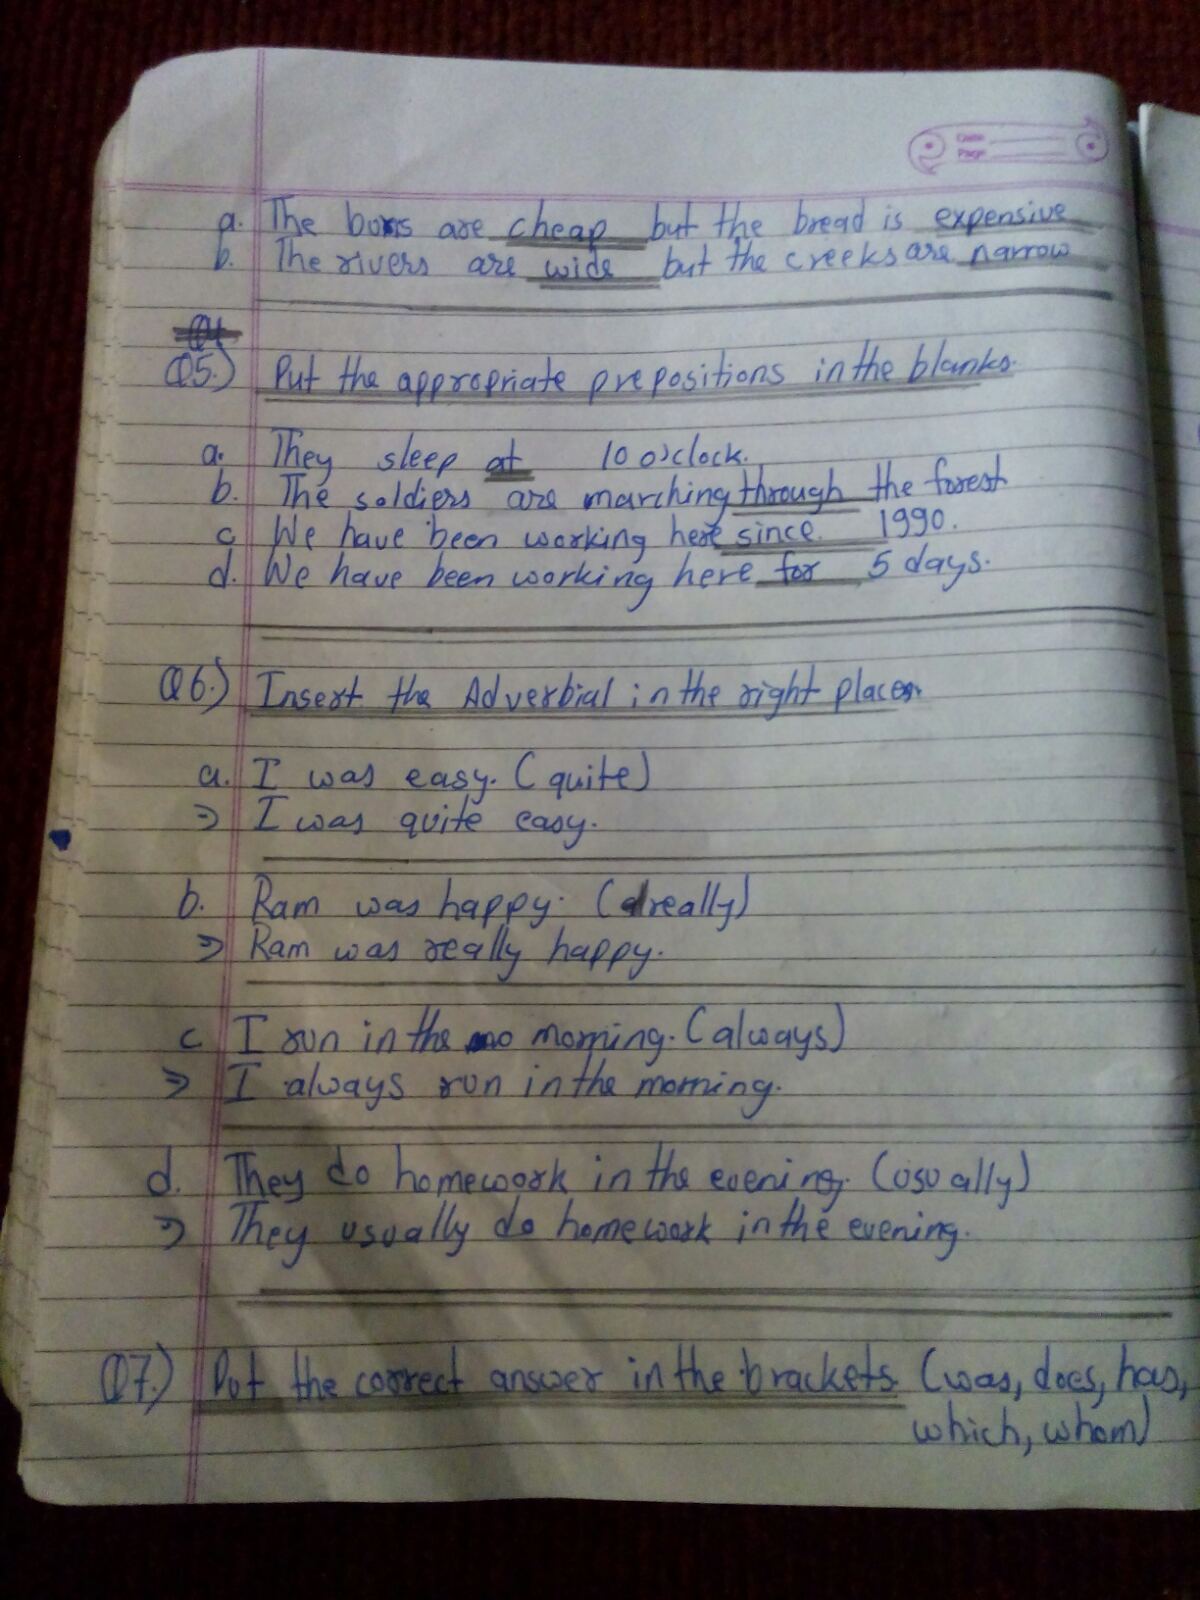 Date
Page
a. The buns are cheap but the bread is expensive
b. The rivers are wide but the creeks are narrow
Q5.) Put the appropriate prepositions in the blanks.
a. They sleep at 10 o'clock.
b. The soldiers are marching through the forest
c We have been working here since 1990.
d. We have been working here for 5 days.
Q6.) Insert the Adverbial in the right places.
a. I was easy. (quite)
⇒ I was quite easy.
b. Ram was happy. (really)
⇒ Ram was really happy.
c I run in the morning. (always)
⇒ I always run in the morning.
d. They do homework in the evening. (usually)
⇒ They usually do homework in the evening.
Q7.) Put the correct answer in the brackets. (was, does, has,
which, whom)